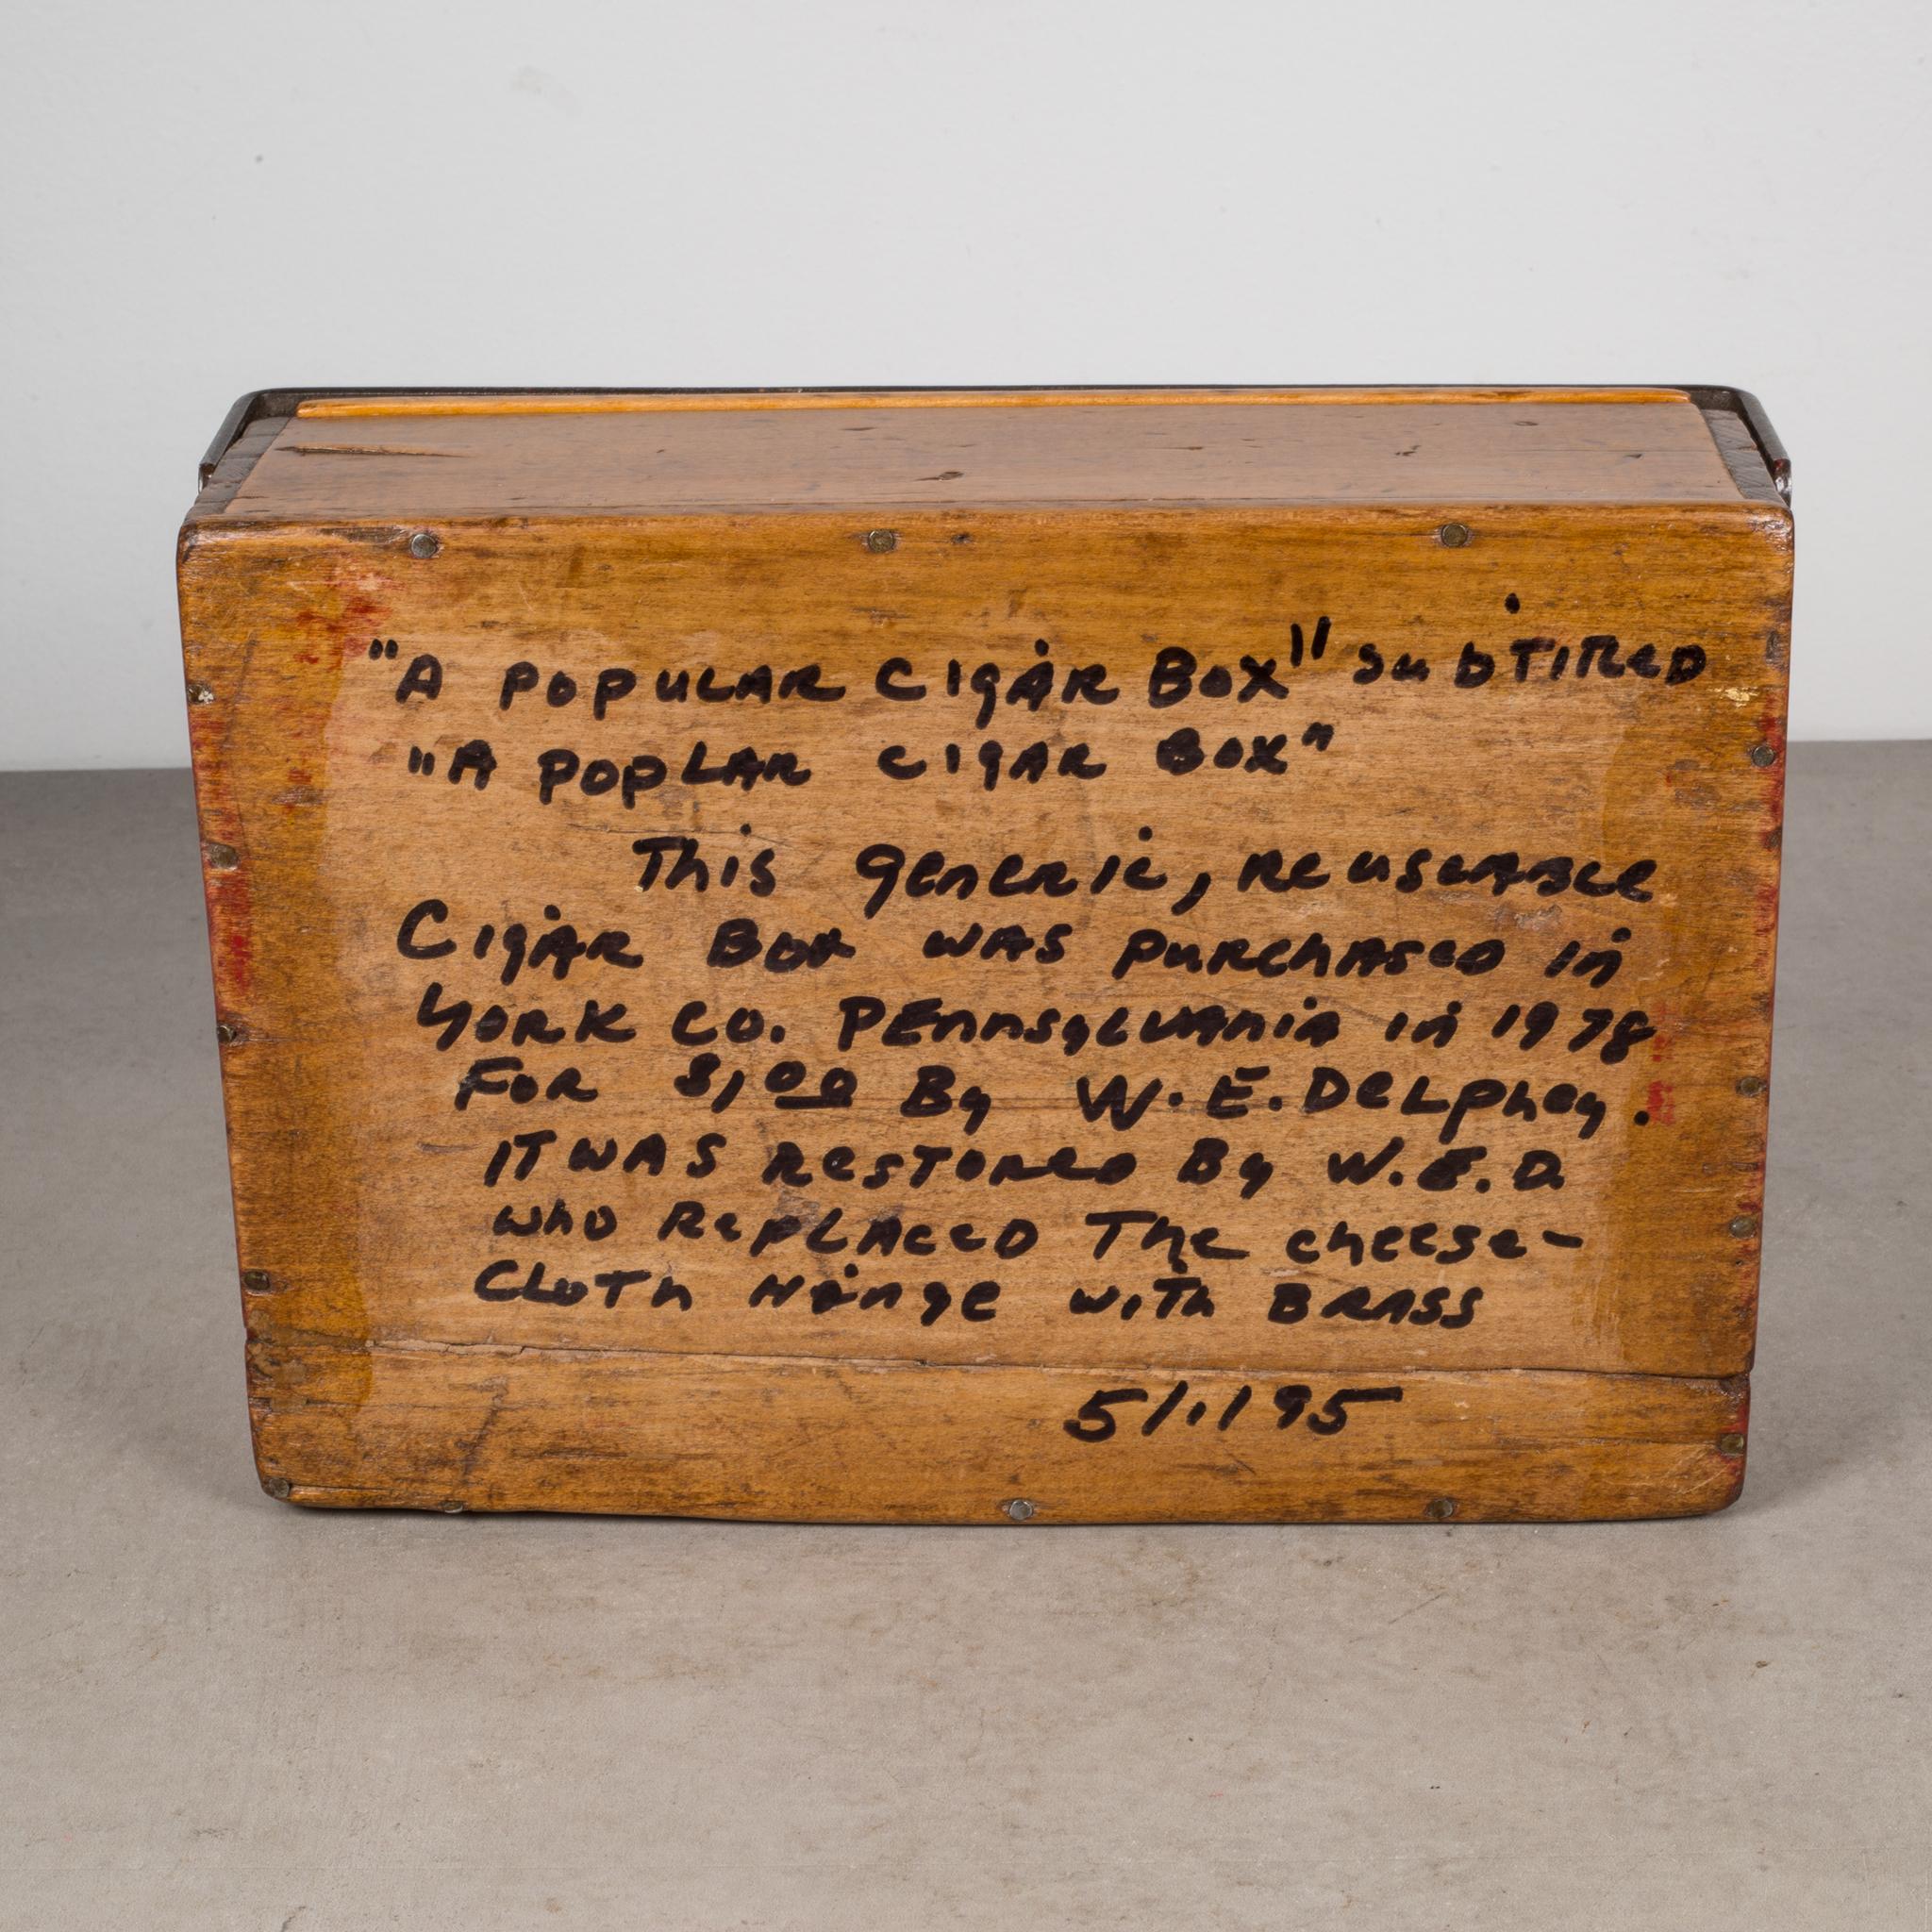 "A POPULAR CIgAR BOX" subTiTLED
"A POPLAR CIgAR BOX"
This generic, Reuseable
CIgAR BOX WAS PURCHASED in
YORK CO. PEnnsyLVAniA in 1978
FOR $1,00 By W. E. DeLPhey.
IT WAS ResTORED By W.E.D.
who RePLACED The cheese-
CLOTh Hinge wiTh BRASS
5/1/95